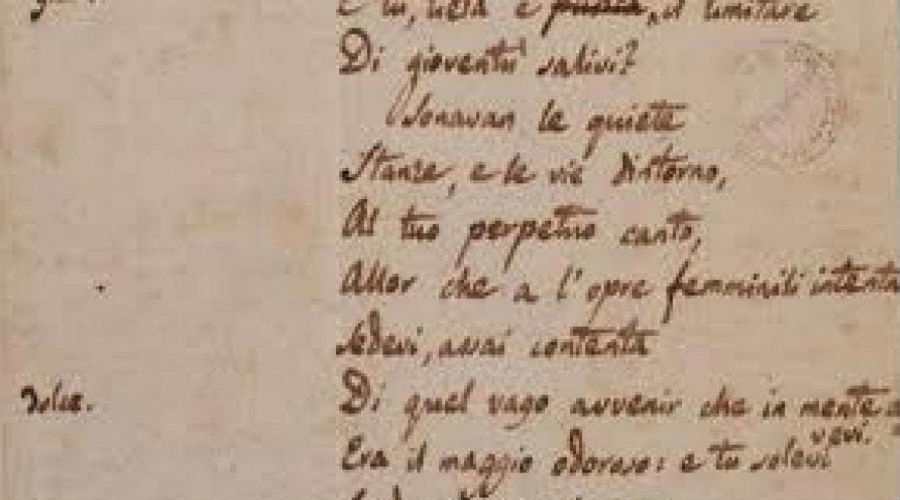 e tu, lieta e pudica, il limitare
Di gioventù salivi?
Sonavan le quiete
Stanze, e le vie dintorno,
Al tuo perpetuo canto,
Allor che a l'opre femminili intenta
sedevi, assai contenta
dolce. Di quel vago avvenir che in mente a
vevi.
Era il maggio odoroso: e tu solevi